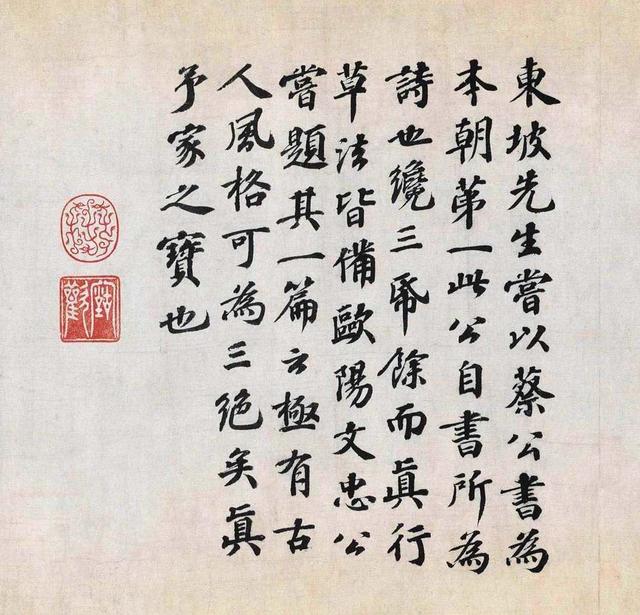 東坡先生嘗以蔡公書為
本朝苐一此公自書所為
詩也纔三帋餘而真行
草法皆備歐陽文忠公
嘗題其一篇云極有古
人風格可為三絕矣真
予家之寶也